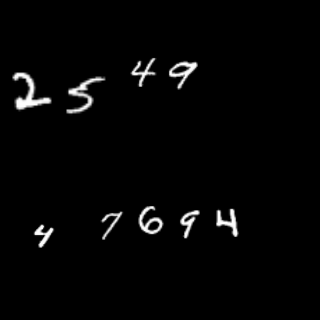 2 5 4 9
4 7 6 9 4